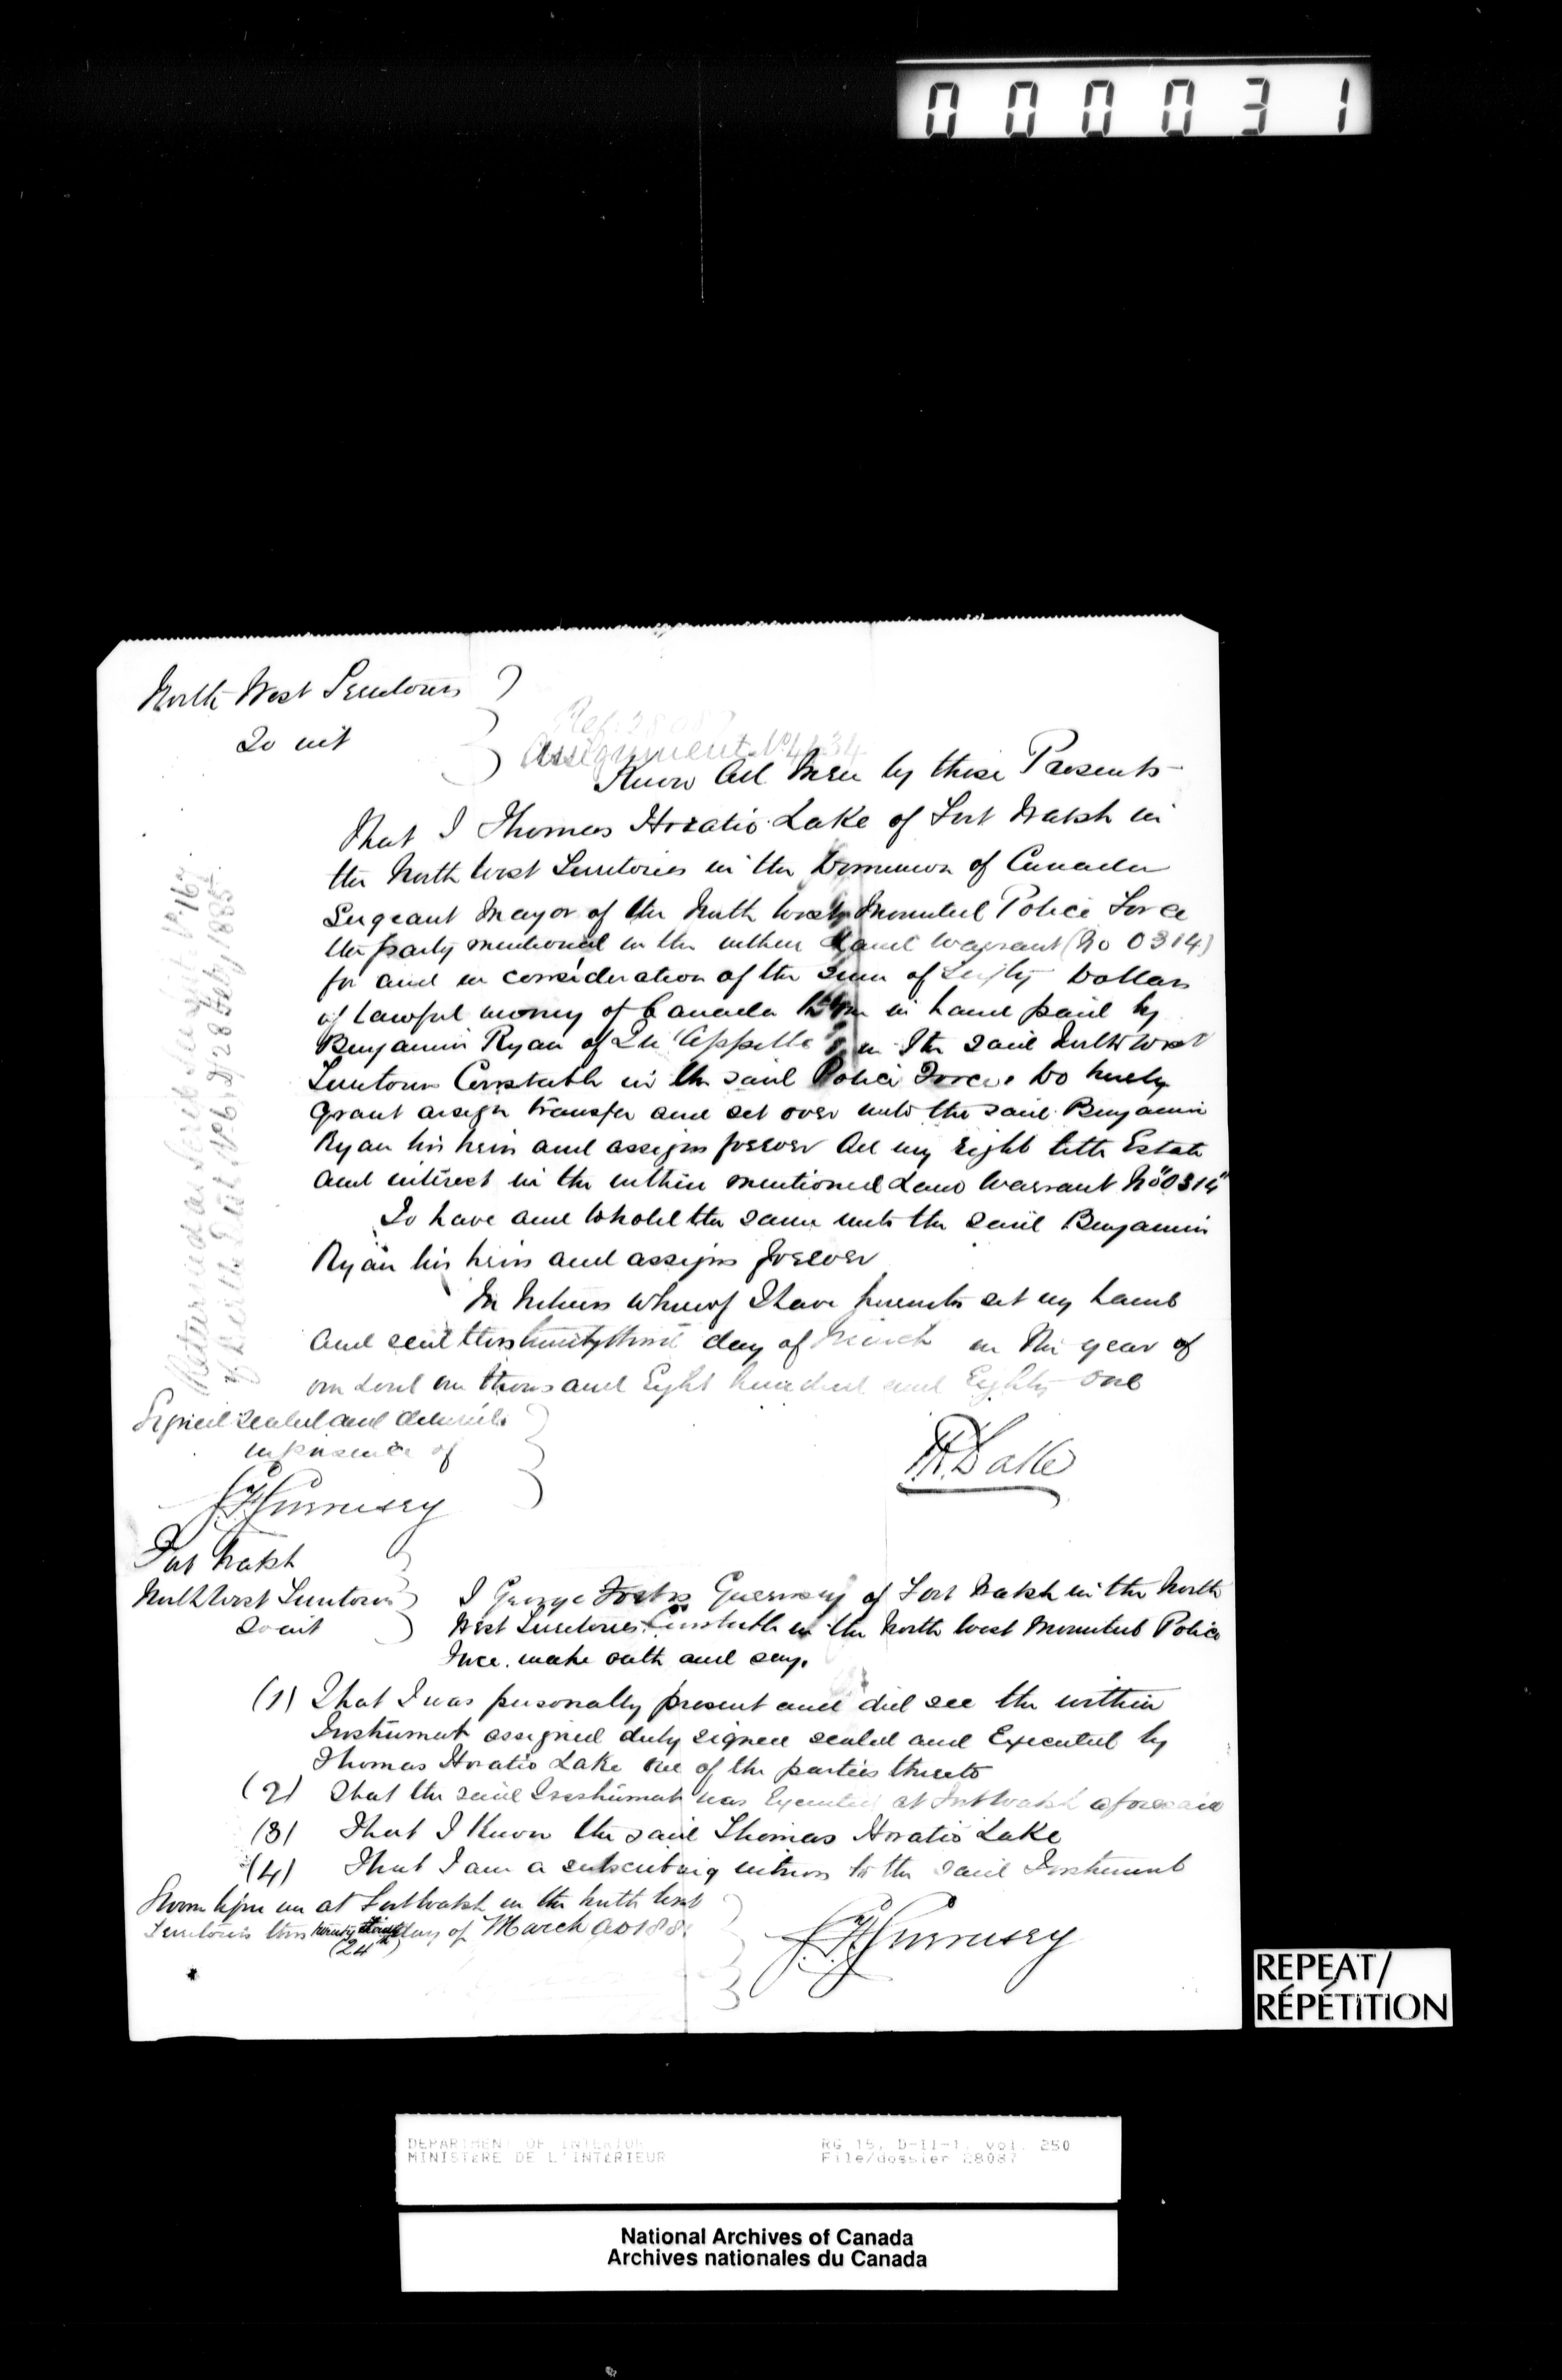 000031
North West Territories
To wit
Ref. 28087
Assignment No 4434
Know all Men by these Presents
That I Thomas Horatio Lake of Fort Walsh in
the North West Territories in the Dominion of Canada
Sergeant Mayor of the North West Mounted Police Force
the party mentioned in the within Land Warrant (No 0314)
for and in consideration of the sum of Dollars
of lawful money of Canada in hand paid by
Benjamin Ryan of Qu'Appelle in the said North West
Territories Constable in the said Police Force. Do hereby
grant assign transfer and set over unto the said Benjamin
Ryan his heirs and assigns forever all my right title Estate
and interest in the within mentioned Land Warrant No "0314"
To have and to hold the same unto the said Benjamin
Ryan his heirs and assigns forever
In Witness Whereof I have hereunto set my hand
and seal this twenty third day of March in the year of
our Lord one thousand Eight hundred and Eighty one
Signed sealed and delivered
in presence of
T.H. Lake
G.F. Guernsey
Fort Walsh
North West Territories
To wit
I George Foster Guernsey of Fort Walsh in the North
West Territories Constable in the North West Mounted Police
Force. make oath and say.
(1) That I was personally present and did see the within
Instrument assigned duly signed sealed and Executed by
Thomas Horatio Lake one of the parties thereto
(2) That the said Instrument was Executed at Fort Walsh aforesaid
(3) That I Know the said Thomas Horatio Lake
(4) That I am a subscribing witness to the said Instrument
Sworn before me at Fort Walsh in the North West
Territories this twenty third day of March AD 188
(24th)
G.F. Guernsey
REPEAT/
RÉPÉTITION
DEPARTMENT OF INTERIOR
MINISTERE DE L'INTERIEUR
RG 15, D-II-1, vol. 250
File/dossier 28087
National Archives of Canada
Archives nationales du Canada